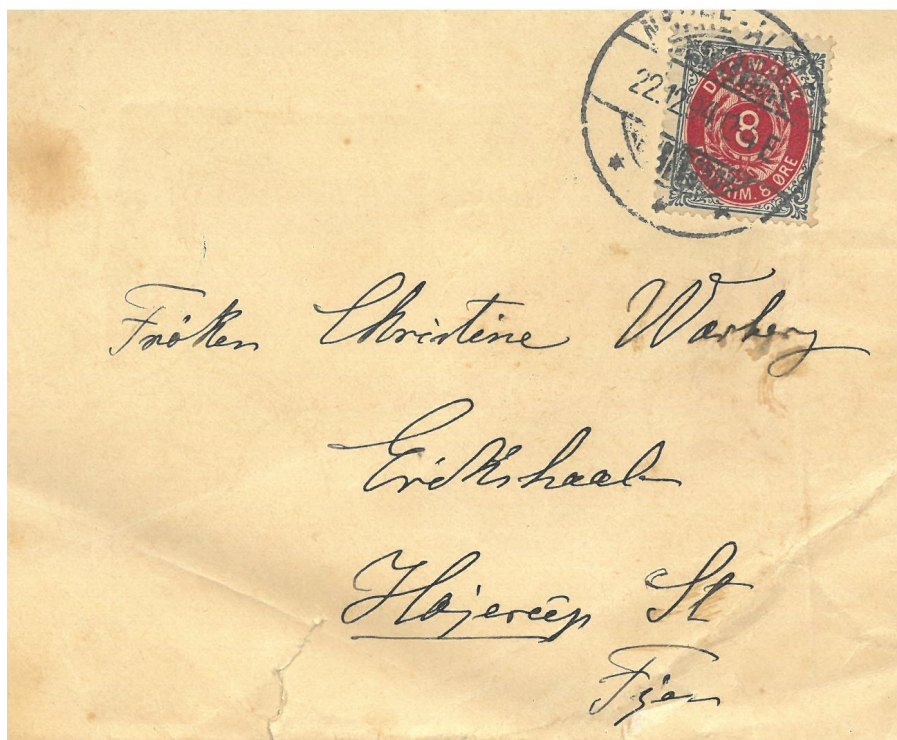 22.12.
DANMARK
8
8 ØRE
Frøken Christine Warberg
Erikshaab
Højerup St
Fyen